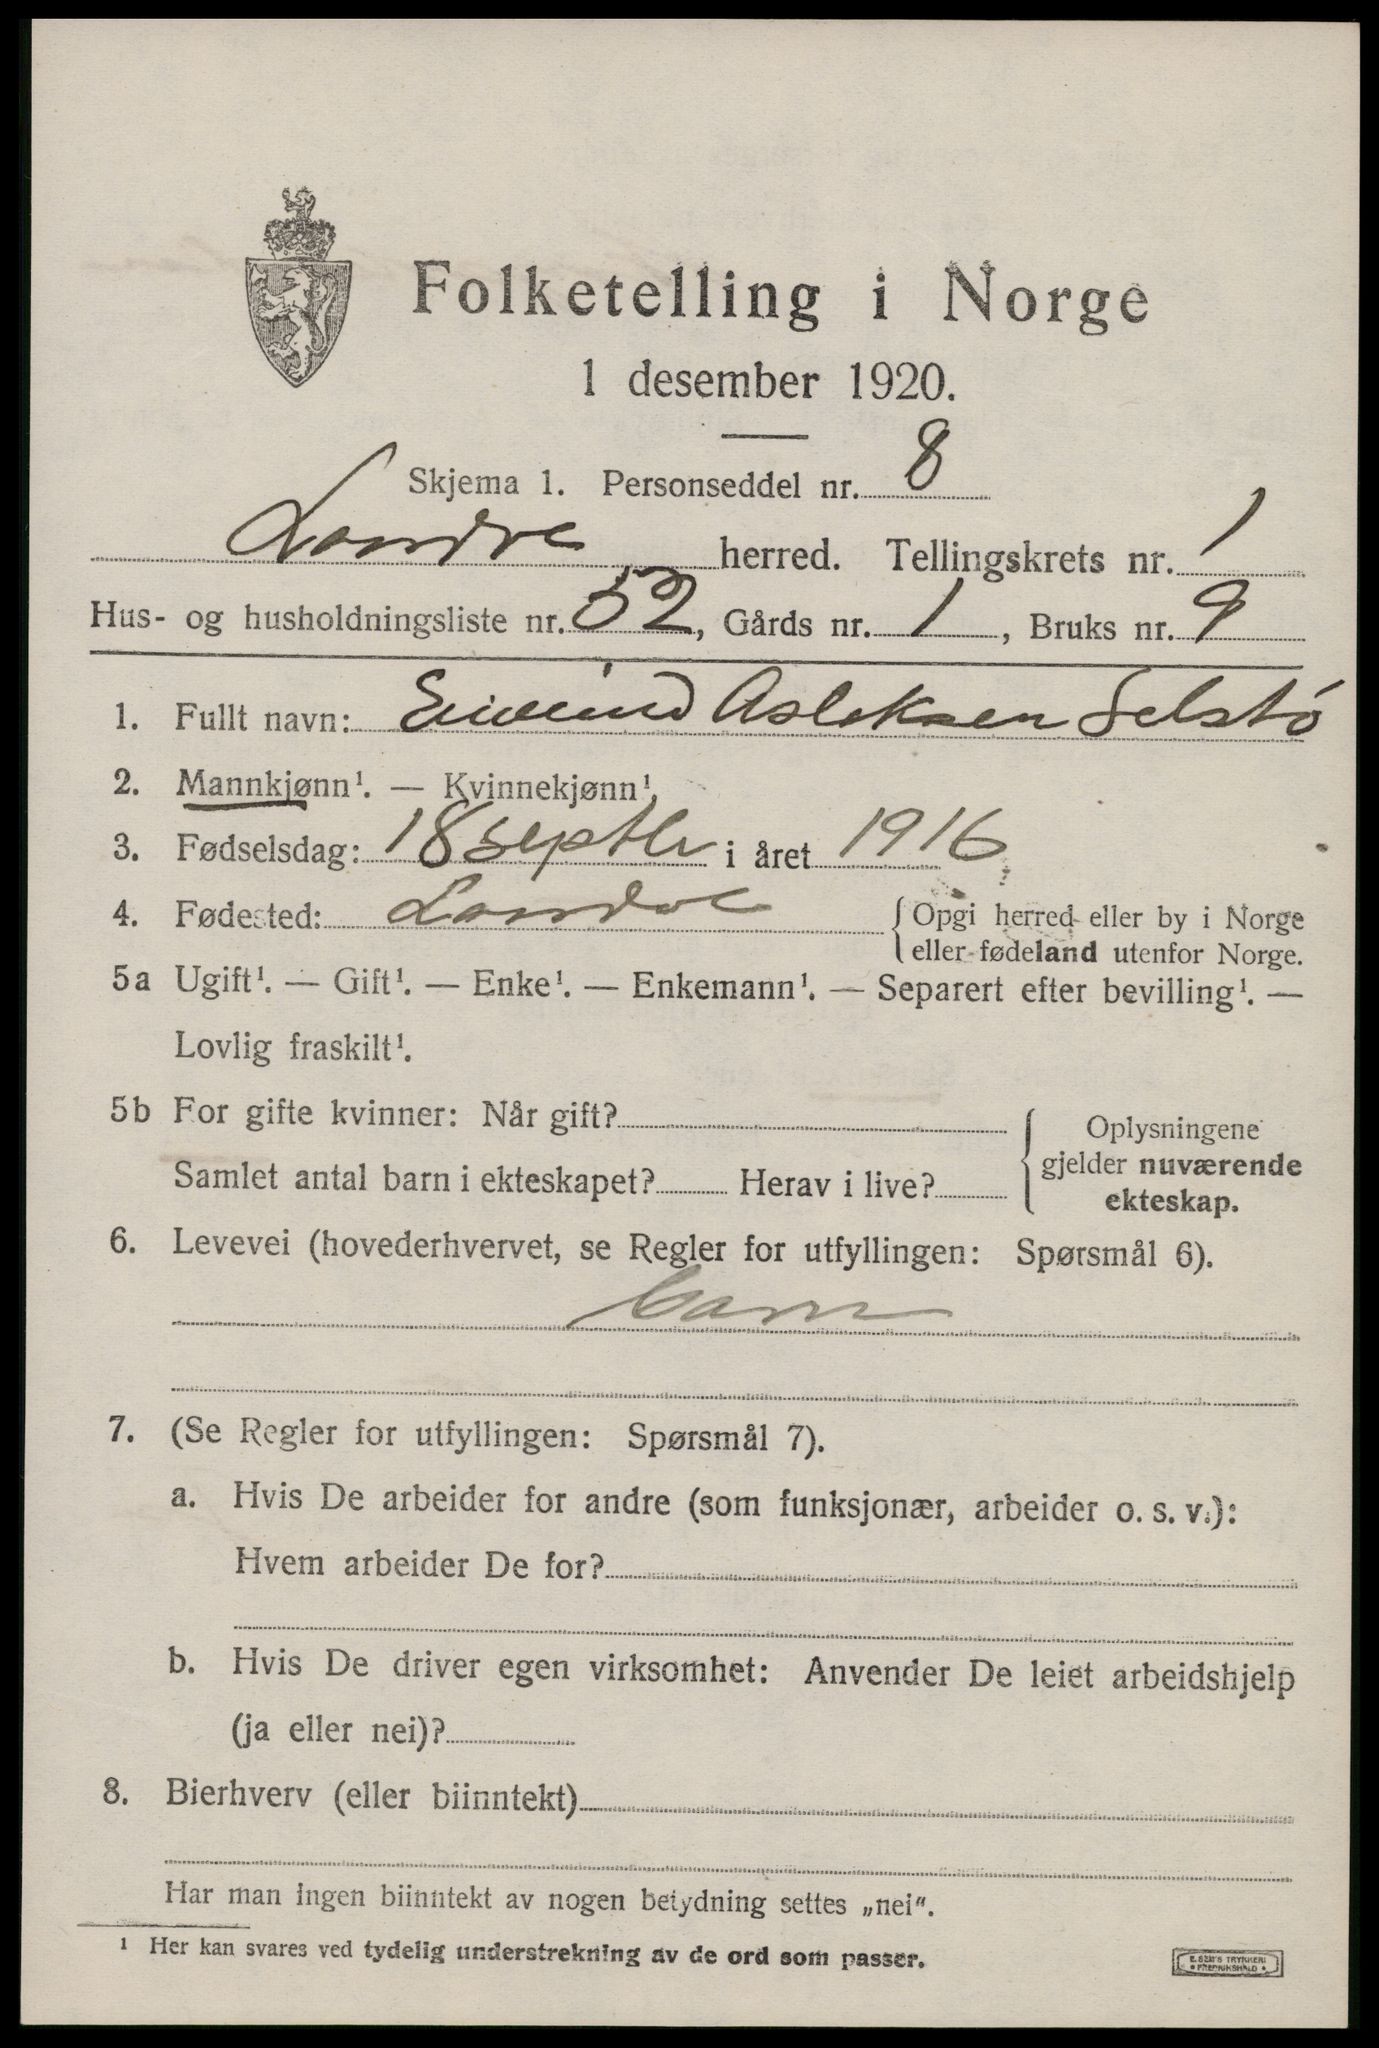 Folketelling i Norge
1 desember 1920.
Skjema 1. Personseddel nr. 8
Landvik herred. Tellingskrets nr. 1
Hus- og husholdningsliste nr. 52, Gårds nr. 1, Bruks nr. 9
1. Fullt navn: Eivind Asleksen Selstö
2. Mannkjønn¹. — Kvinnekjønn¹.
3. Fødselsdag: 18 septbr i året 1916
4. Fødested: Landvik {Opgi herred eller by i Norge
eller fødeland utenfor Norge.
5a Ugift¹. — Gift¹. — Enke¹. — Enkemann¹. — Separert efter bevilling¹. —
Lovlig fraskilt¹.
5b For gifte kvinner: Når gift?
Samlet antal barn i ekteskapet? Herav i live?
{Oplysningene
gjelder nuværende
ekteskap.
6. Levevei (hovederhvervet, se Regler for utfyllingen: Spørsmål 6).
barn
7. (Se Regler for utfyllingen: Spørsmål 7).
a. Hvis De arbeider for andre (som funksjonær, arbeider o. s. v.):
Hvem arbeider De for?
b. Hvis De driver egen virksomhet: Anvender De leiet arbeidshjelp
(ja eller nei)?
8. Bierhverv (eller biinntekt)
Har man ingen biinntekt av nogen betydning settes „nei“.
¹ Her kan svares ved tydelig understrekning av de ord som passer.
E. SEM'S TRYKKERI
• FREDRIKSHALD •